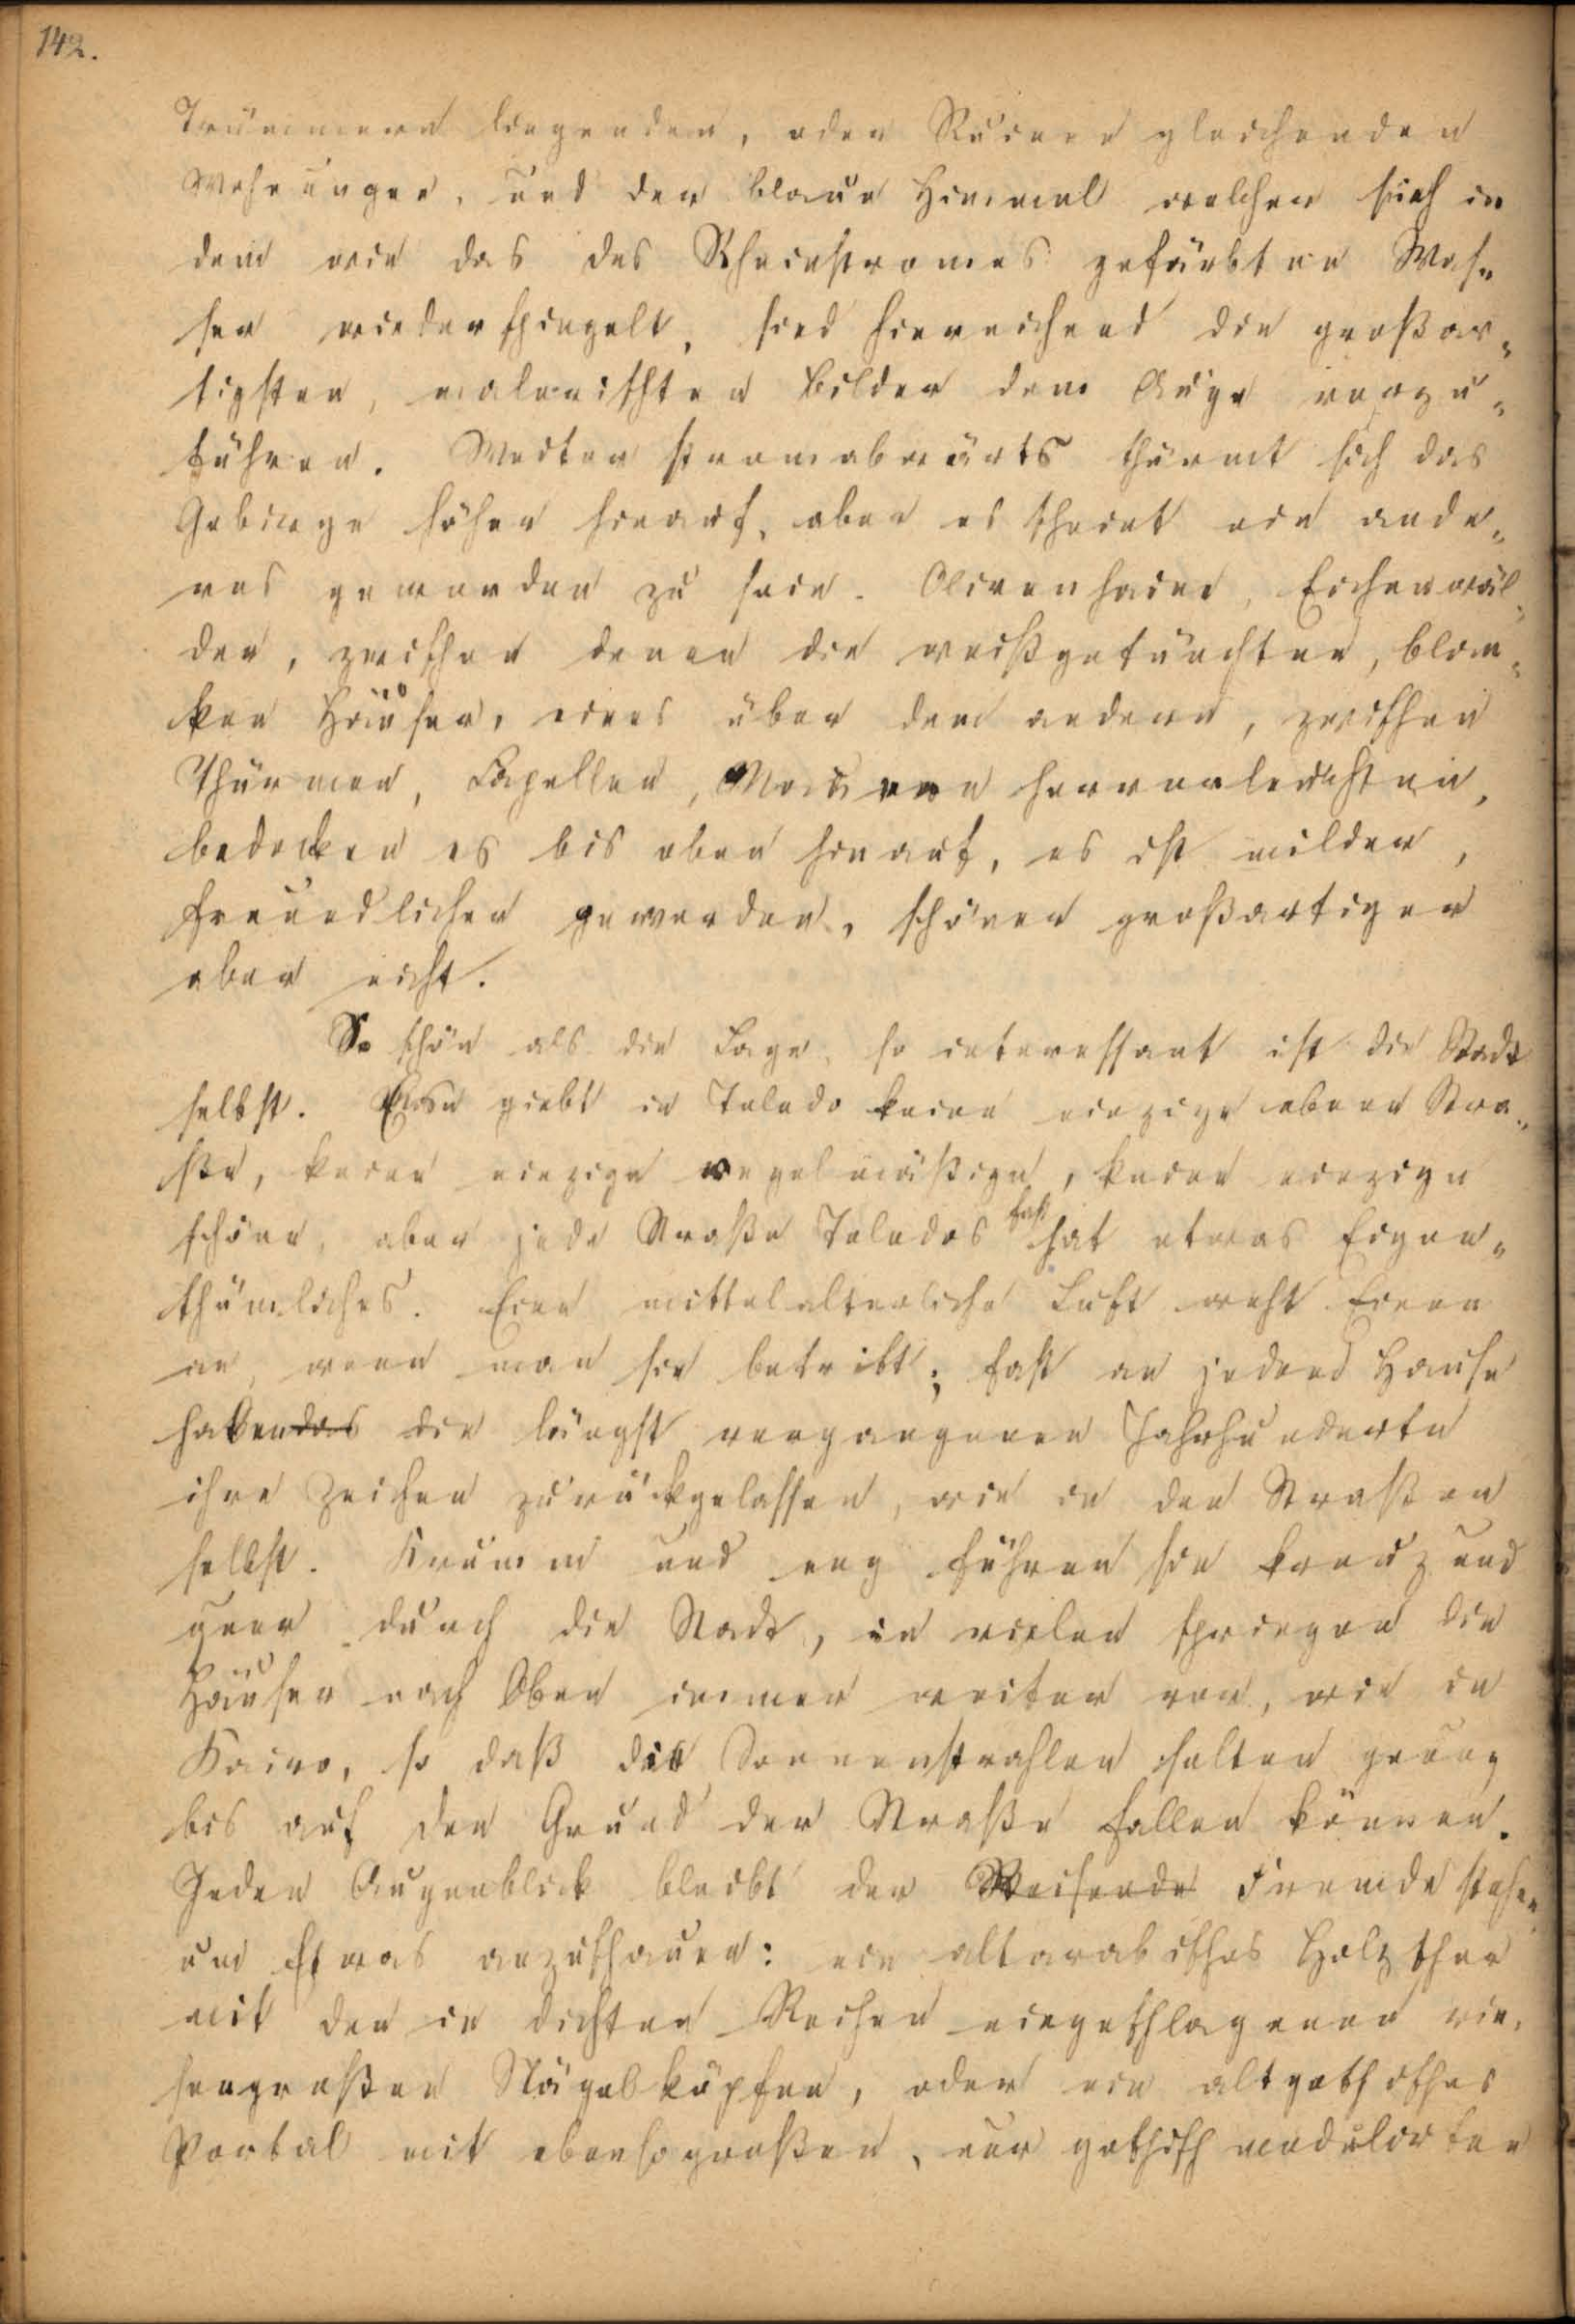 142.
Trümmern liegenden, oder Ruinen gleichenden
Wohnungen, und der blaue Himmel welcher sich in
dem wie das des Rheinstromes gefärbten Was„
ser wiederspiegelt, sind hinreichend die großar„
tigsten, malerischten Bilder dem Auge vorzu„
führen. Weiter stromabwärts thürmt sich das
Gebirge höher hinauf, aber es scheint ein ande„
res geworden zu sein. Olivenhaine, Eichenwäl„
der, zwischen denen die weißgetünchten, blan„
ken Häuser, eines über dem andern, zwischen
Thürmen, Capellen, Mauern hervorleuchten,
bedecken es bis oben hinauf, es ist milder,
freundlicher geworden, schöner großartiger
aber nicht.
So schön als die Lage, so interessant ist die Stadt
selbst. Es giebt in Toledo keine einzige ebene Stra„
ße, keine einzige regelmäßige, keine einzige
schöne, aber jede Straße Toledos fast hat etwas Eigen„
thümliches. Eine mittelalterliche Luft weht Einen
an, wenn man sie betritt; fast an jedem Hause
haben das die längst vergangenen Jahrhunderte
ihre Zeichen zurückgelassen, wie in den Straßen
selbst. Krumm und eng führen sie kreuz und
quer durch die Stadt, in vielen springen die
Häuser nach Oben immer weiter vor, wie in
Kairo, so daß die Sonnenstrahlen selten genug
bis auf den Grund der Straße fallen können.
Jeden Augenblick bleibt der Reisende Fremde stehen
um Etwas anzuschauen: ein altarabisches Holzthor
mit den in dichten Reihen eingeschlagenen rie„
sengroßen Nägelköpfen, oder ein altgothisches
Portal mit ebensogroßen, nur gothisch modulirten